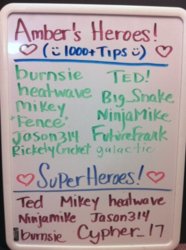 Amber's Heroes!
(ü 1000+ Tips ü)
burnsie TED!
heatwave Big_Snake
mikey NinjaMike
"Fence" FutureFrank
Jason314 galactic
RicketyCricket
Super Heroes!
Ted Mikey heatwave
Ninjamike Jason314
burnsie Cypher_17